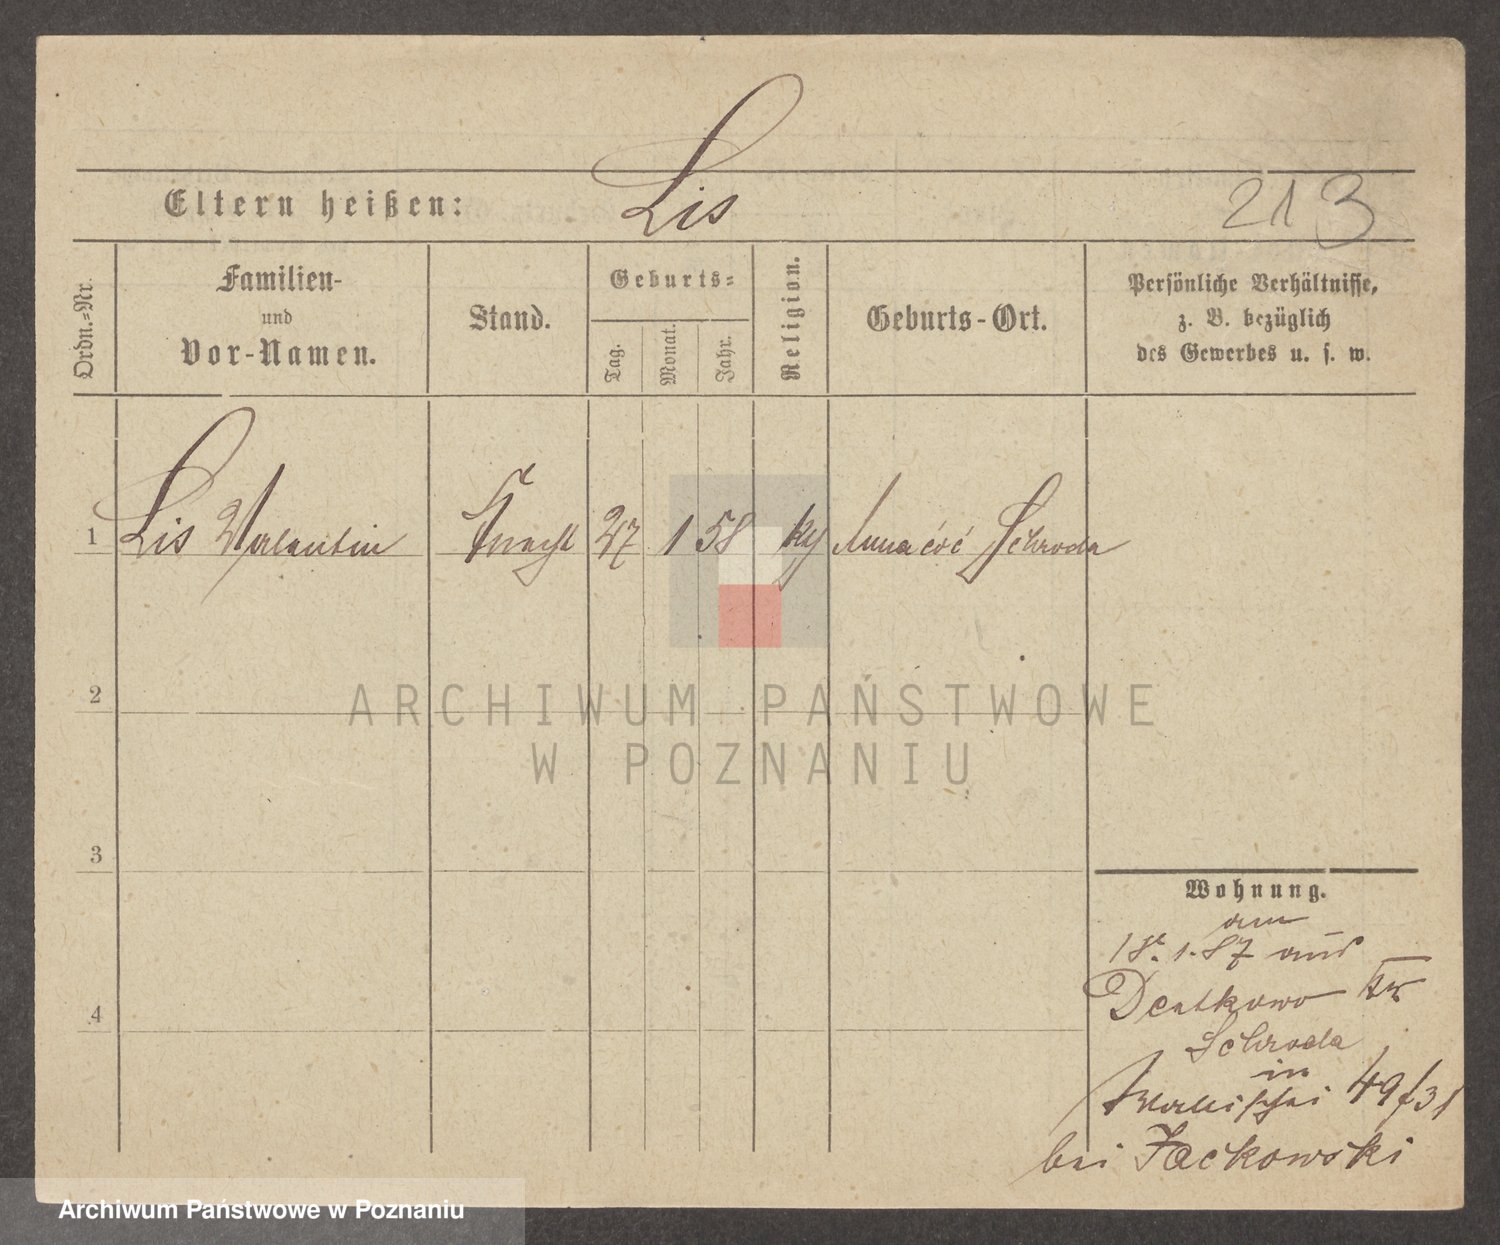 Eltern heißen: Lis
213
Ordn.=Nr.
Familien-
und
Vor-Namen.
Stand.
Geburts=
Tag.
Monat.
Jahr.
Religion.
Geburts-Ort.
Persönliche Verhältnisse,
z. B. bezüglich
des Gewerbes u. s. w.
1 Lis Valentin Knecht 27 1 58 Schroda
2
ARCHIWUM PAŃSTWOWE
W POZNANIU
3
4
Wohnung.
am
18. 1. 87 aus
Schroda
in
Wallischei 49/31
bei Jackowski
Archiwum Państwowe w Poznaniu